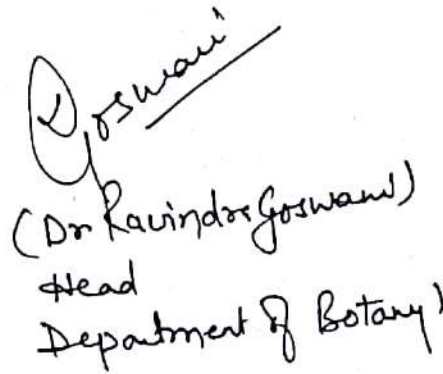 Goswami
(Dr Ravindra Goswami)
Head
Department of Botany)